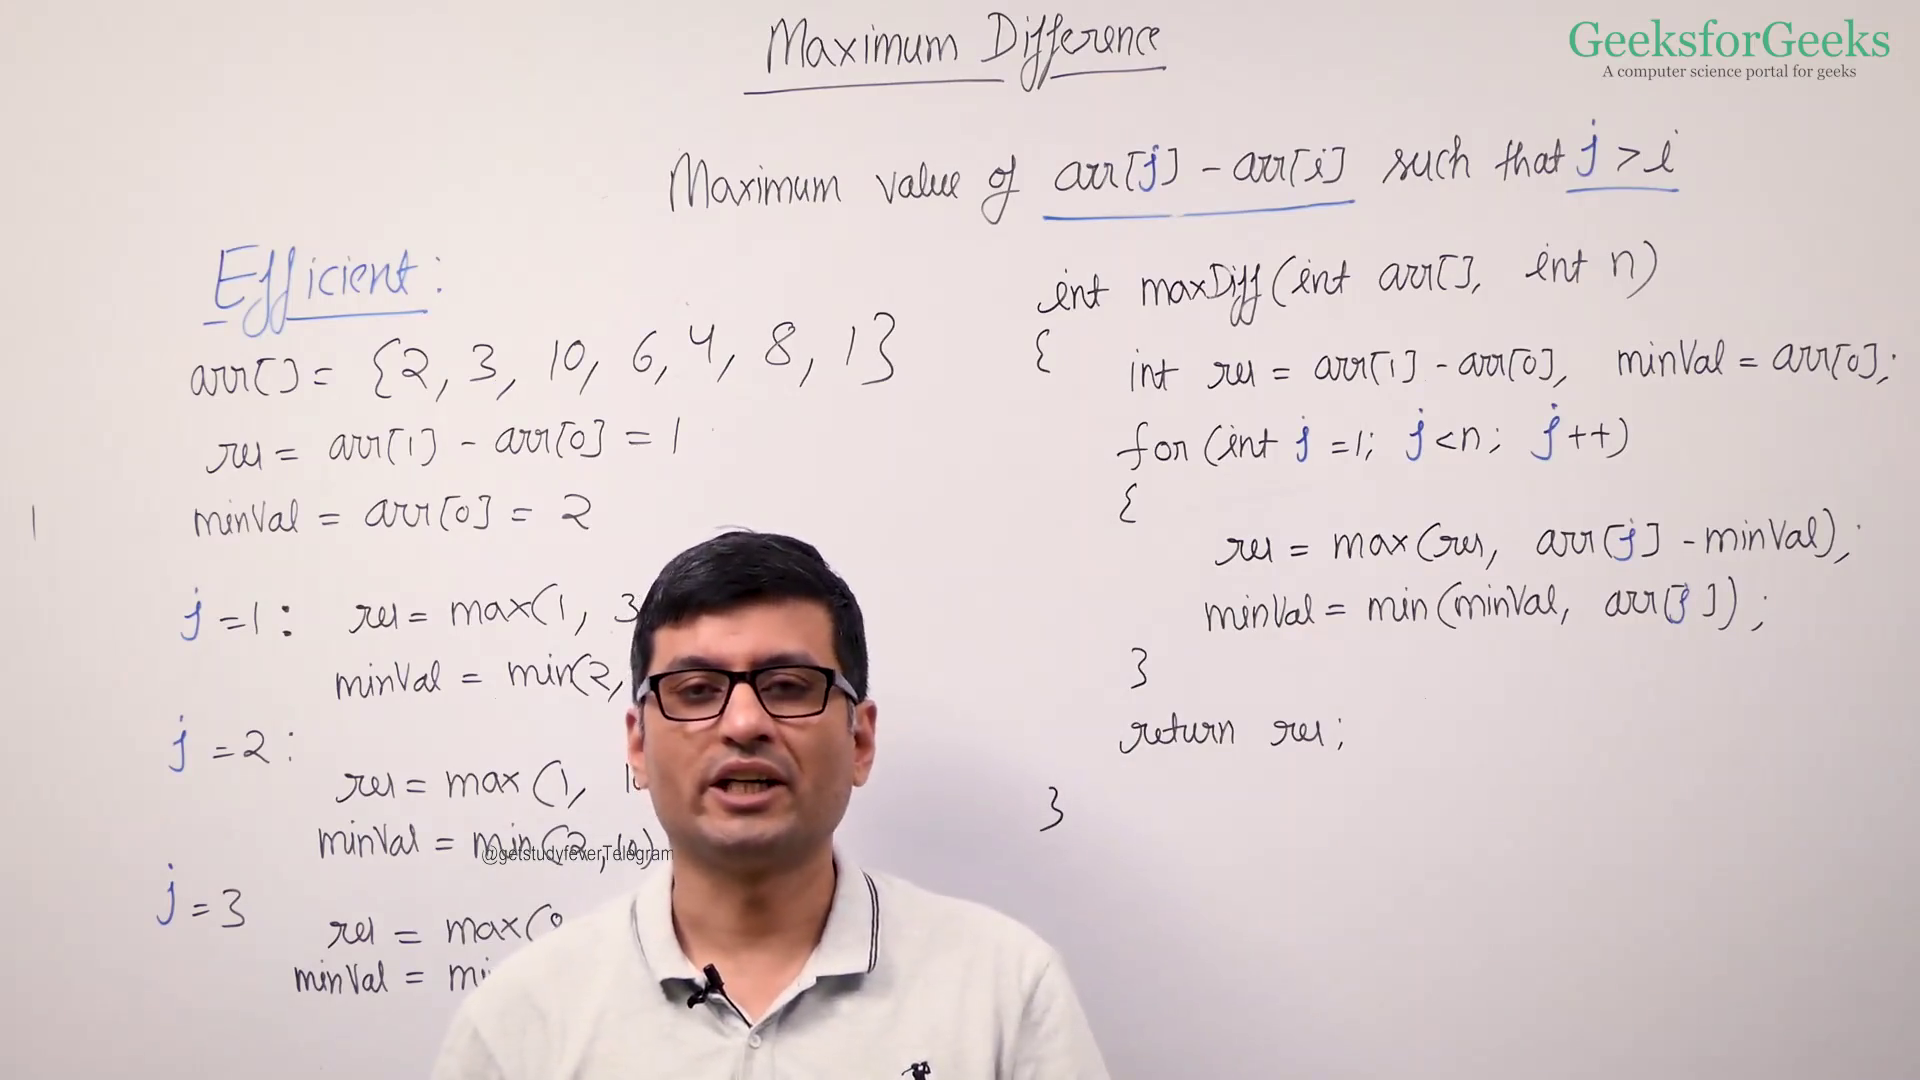 Maximum Difference
GeeksforGeeks
A computer science portal for geeks
Maximum value of arr[j] - arr[i] such that j > i
Efficient:
arr[] = {2, 3, 10, 6, 4, 8, 1}
res = arr[1] - arr[0] = 1
minVal = arr[0] = 2
j = 1: res = max(1, 3
minVal = min(2,
j = 2:
res = max(1,
minVal = min(2, 10)
@getstudyfeverTelegram
j = 3
res = max(
minVal =
int maxDiff(int arr[], int n)
{
int res = arr[1] - arr[0], minVal = arr[0];
for (int j = 1; j < n; j++)
{
res = max(res, arr[j] - minVal);
minVal = min(minVal, arr[j]);
}
return res;
}